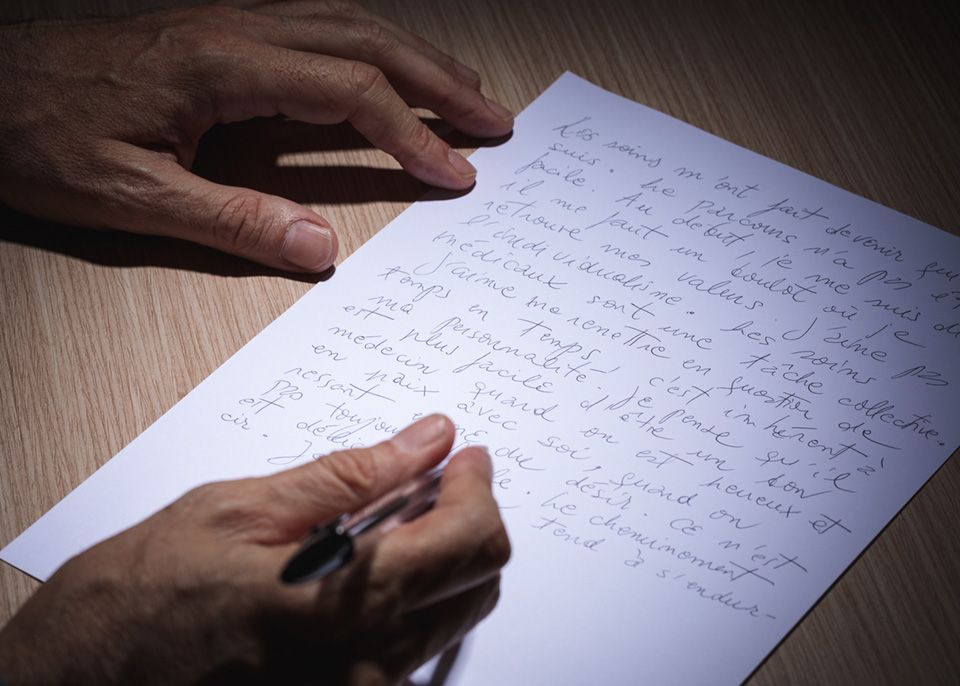 Les soins m'ont fait devenir
suis. Le parcours n'a pas
facile. Au début, je me suis
il me faut un boulot où je
retrouve mes valeurs. J'aime pas
l'individualisme. Les soins
médicaux sont une tâche collective.
J'aime me remettre en question de
temps en temps, c'est inhérent à
ma personnalité. Je pense qu'il
est plus facile d'être un bon
médecin quand on est heureux et
en paix avec soi, quand on
ressent du désir. Ce n'est
pas toujours Le cheminement
est tend à s'endur-
cir.